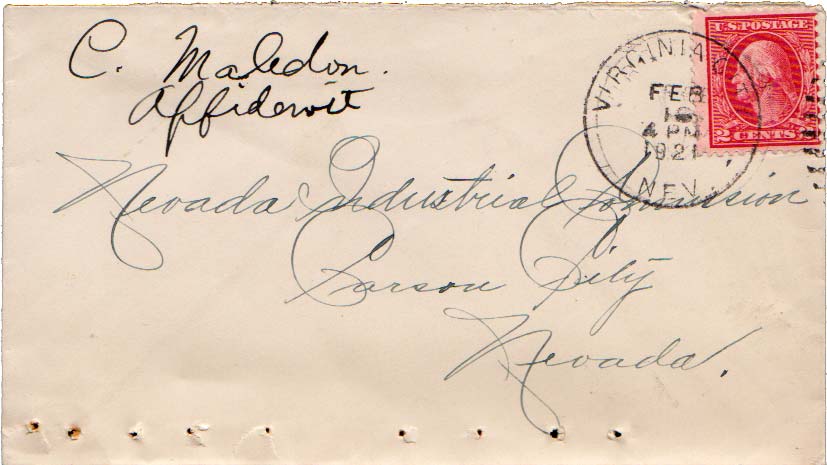 C. Maledon.
Affidevit
VIRGINIA CITY
FEB
16
4 PM
1921
NEV.
U.S. POSTAGE
2 CENTS 2
Nevada Industrial Commission
Carson City
Nevada.